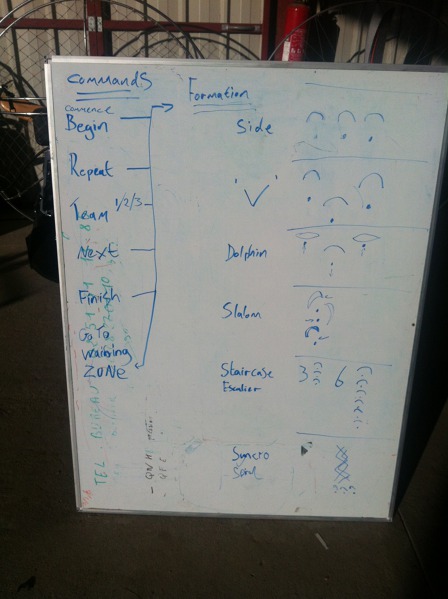 Commands
commence
Begin
Repeat
Team 1/2/3
Next
Finish
Go To
waiting
ZONE
Formation
Side
'V'
Dolphin
Slalom
Staircase 3 6
Escalier
Syncro
TEL